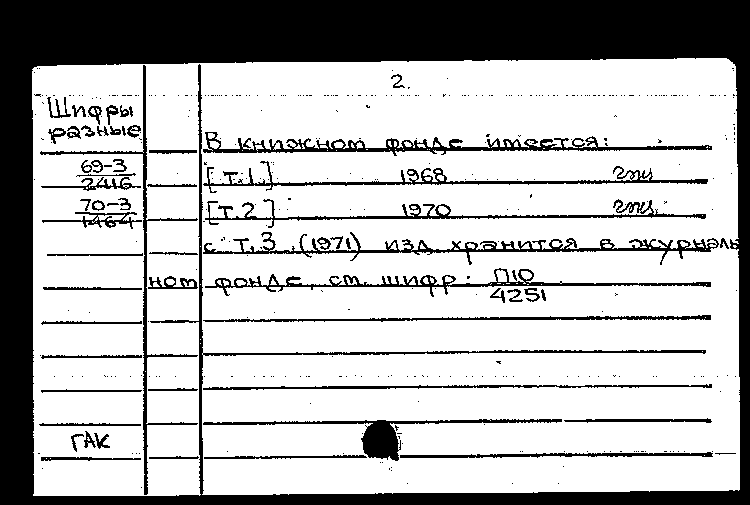 2.
Шифры
разные
В книжном фонде имеется:
69-3
2416 [т.1.] 1968
70-3
1464 [т.2] 1970
с т.3 (1971) изд. хранится в журналь
ном фонде, ст. шифр: П10
4251
ГАК